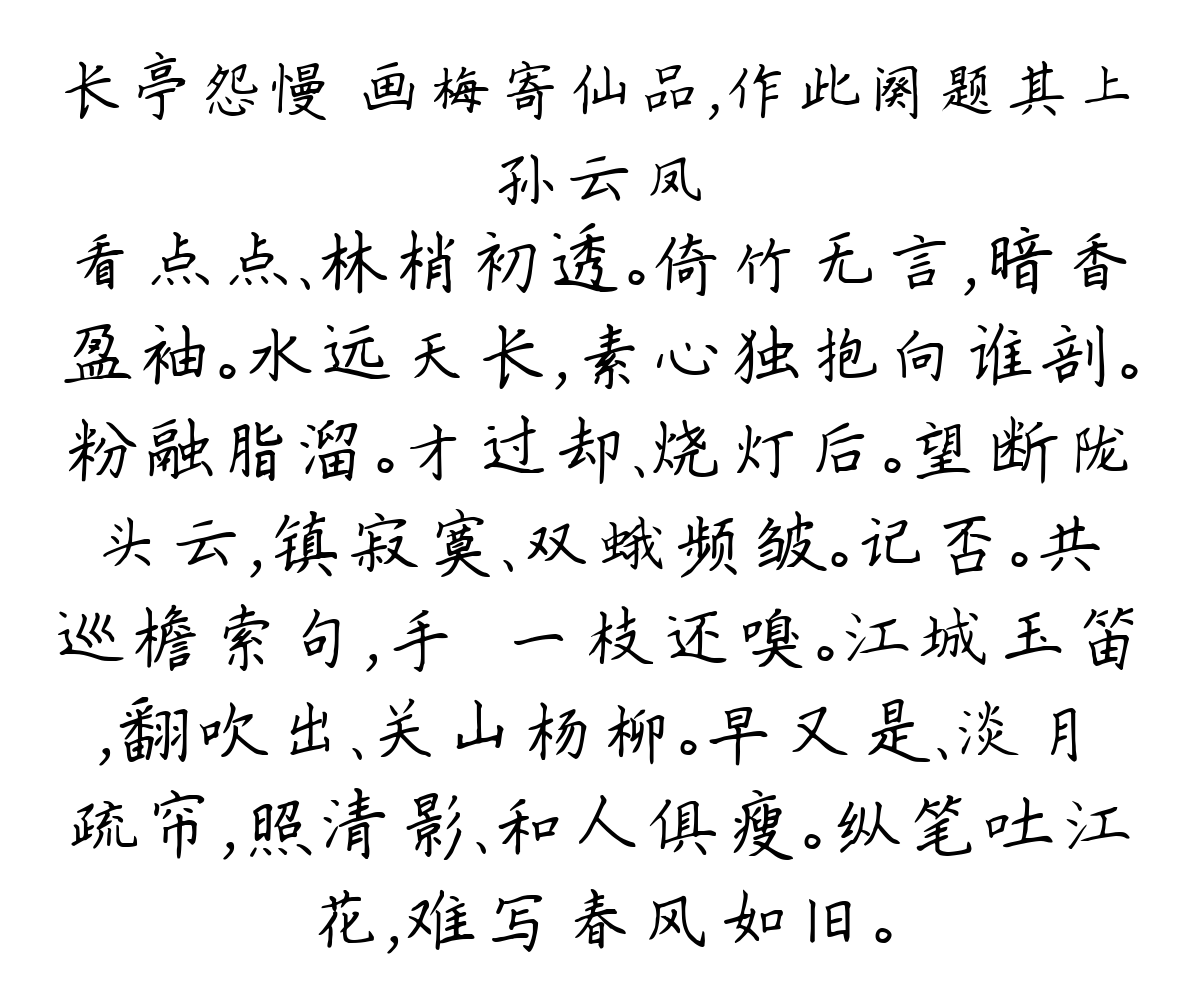 长亭怨慢 画梅寄仙品,作此阕题其上
孙云凤
看点点、林梢初透。倚竹无言,暗香
盈袖。水远天长,素心独抱向谁剖。
粉融脂溜。才过却、烧灯后。望断陇
头云,镇寂寞、双蛾频皱。记否。共
巡檐索句,手 一枝还嗅。江城玉笛
,翻吹出、关山杨柳。早又是、淡月
疏帘,照清影、和人俱瘦。纵笔吐江
花,难写春风如旧。